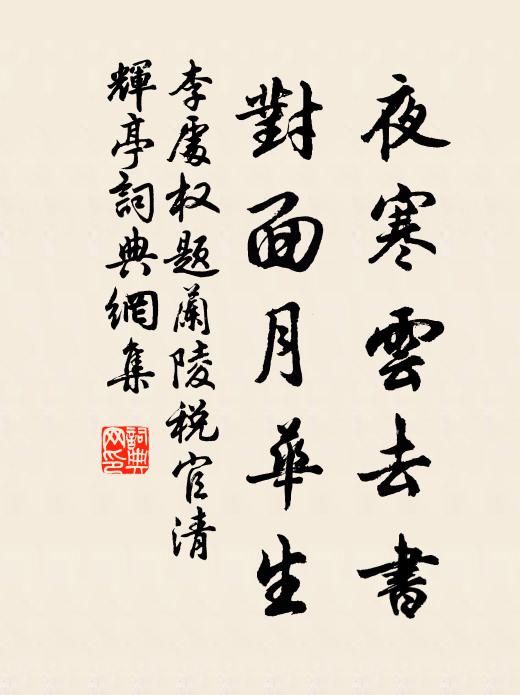 夜寒雲去書
對面月華生
李處权题蘭陵税官清
輝亭詞典網集
詞典
网印